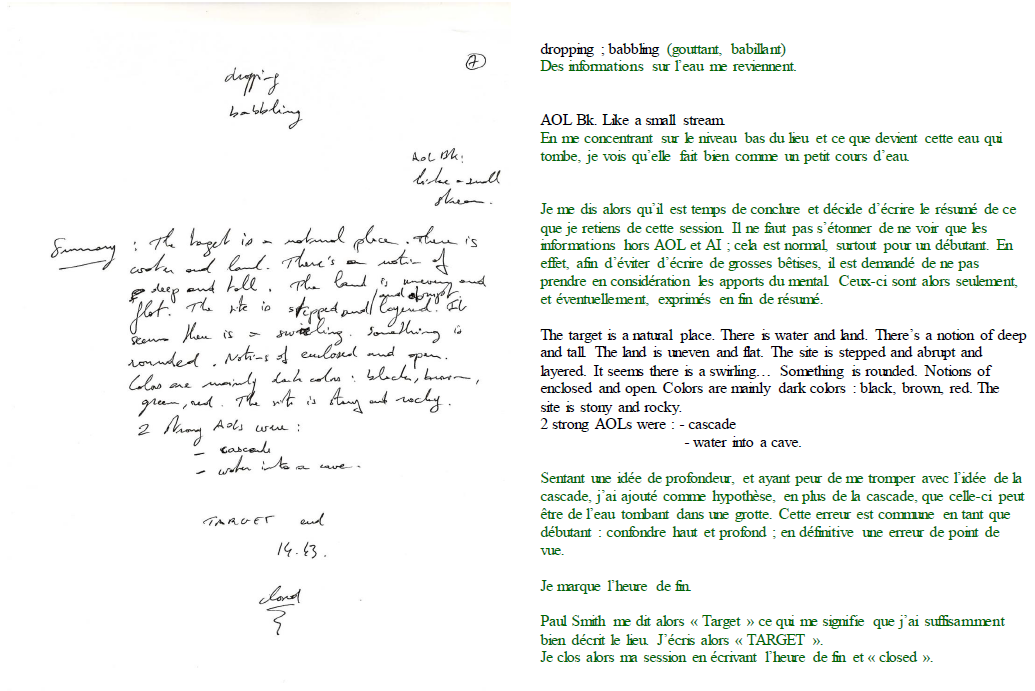 7
dropping
babbling
AOL Bk:
like a small
stream.
Summary : The target is a natural place. There is
water and land. There's a notion of
deep and tall. The land is uneven and
flat. The site is stepped and / and abrupt / layered. It
seems there is a swirling. Something is
rounded. Notions of enclosed and open.
Colors are mainly dark colors : black, brown,
green, red. The site is stony and rocky.
2 strong AOLs were :
- cascade
- water into a cave.
TARGET end
14.43.
closed
dropping ; babbling (gouttant, babillant)
Des informations sur l'eau me reviennent.
AOL Bk. Like a small stream.
En me concentrant sur le niveau bas du lieu et ce que devient cette eau qui
tombe, je vois qu'elle fait bien comme un petit cours d'eau.
Je me dis alors qu'il est temps de conclure et décide d'écrire le résumé de ce
que je retiens de cette session. Il ne faut pas s'étonner de ne voir que les
informations hors AOL et AI ; cela est normal, surtout pour un débutant. En
effet, afin d'éviter d'écrire de grosses bêtises, il est demandé de ne pas
prendre en considération les apports du mental. Ceux-ci sont alors seulement,
et éventuellement, exprimés en fin de résumé.
The target is a natural place. There is water and land. There's a notion of deep
and tall. The land is uneven and flat. The site is stepped and abrupt and
layered. It seems there is a swirling… Something is rounded. Notions of
enclosed and open. Colors are mainly dark colors : black, brown, red. The
site is stony and rocky.
2 strong AOLs were : - cascade
- water into a cave.
Sentant une idée de profondeur, et ayant peur de me tromper avec l'idée de la
cascade, j'ai ajouté comme hypothèse, en plus de la cascade, que celle-ci peut
être de l'eau tombant dans une grotte. Cette erreur est commune en tant que
débutant : confondre haut et profond ; en définitive une erreur de point de
vue.
Je marque l'heure de fin.
Paul Smith me dit alors « Target » ce qui me signifie que j'ai suffisamment
bien décrit le lieu. J'écris alors « TARGET ».
Je clos alors ma session en écrivant l'heure de fin et « closed ».